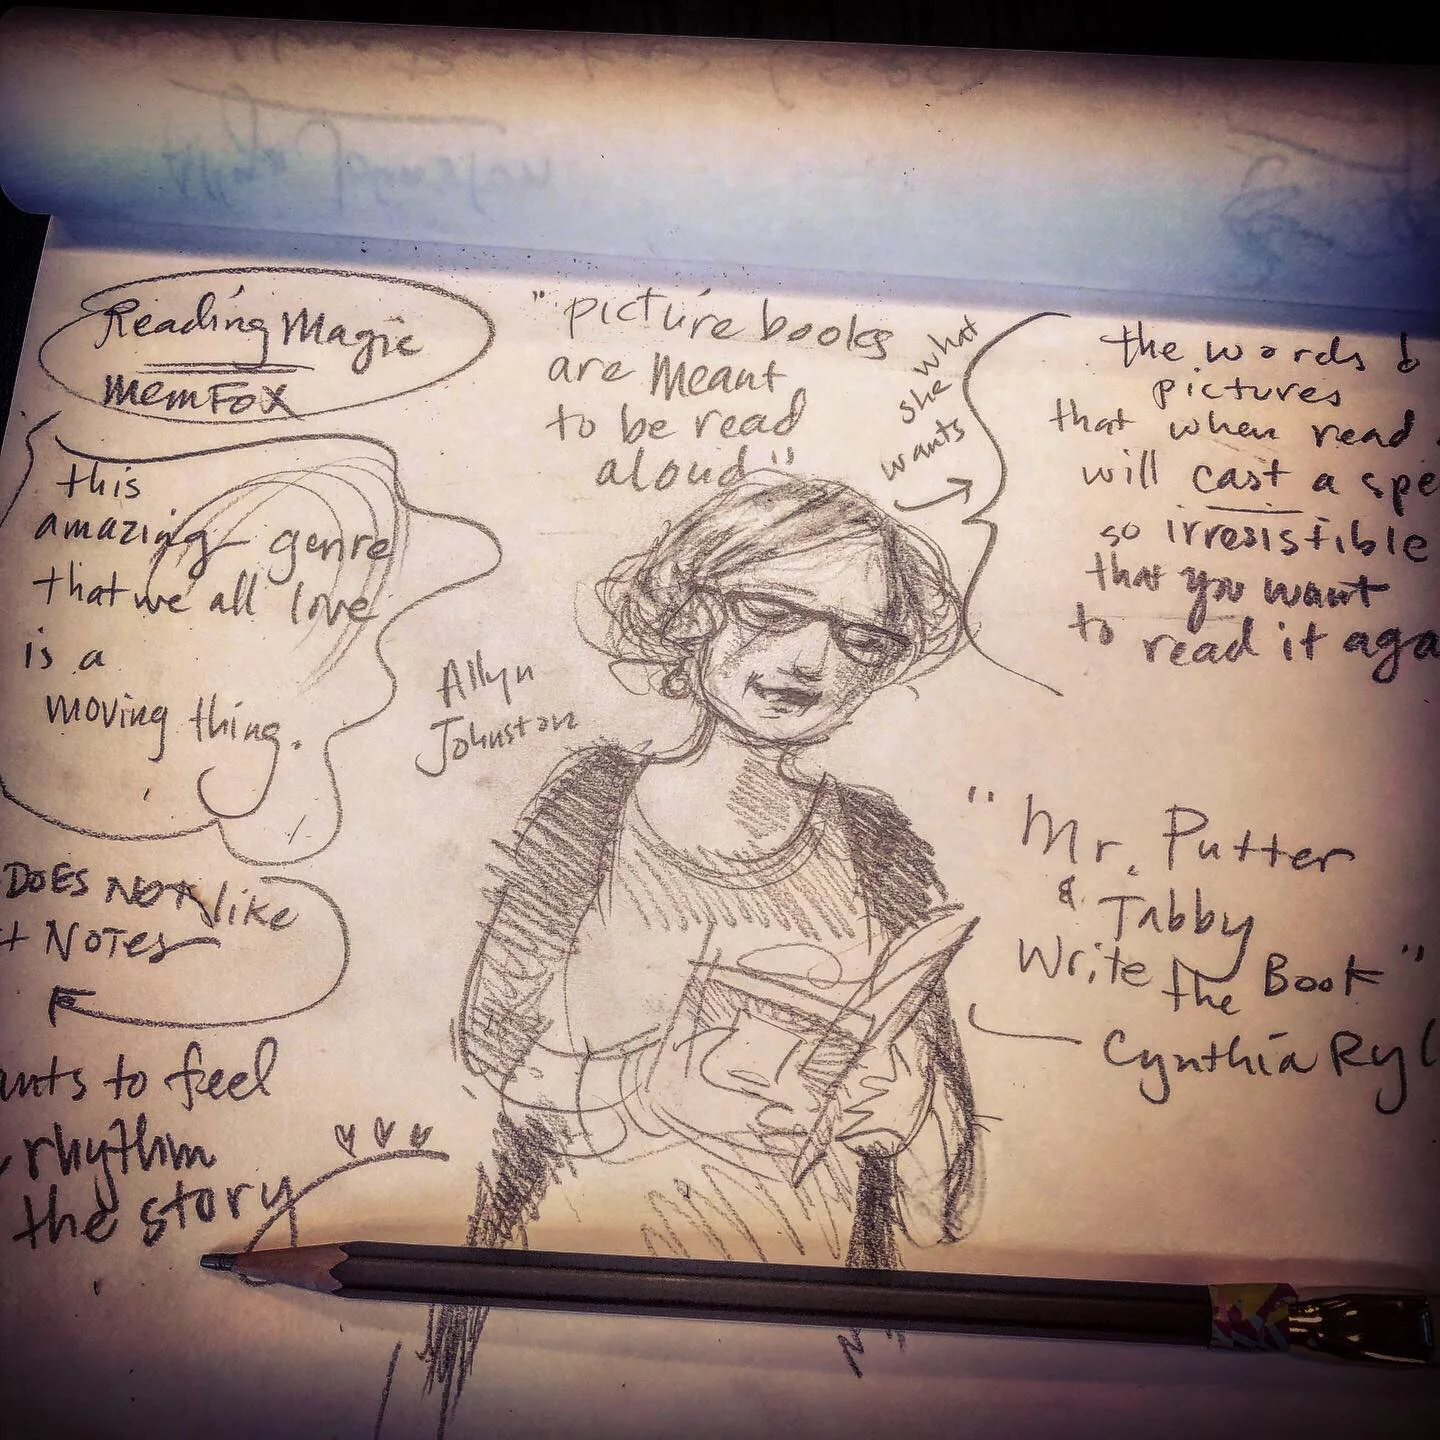 Reading Magic
Mem Fox
"picture books
are Meant
to be read
aloud"
what
she
wants
the words &
pictures
that when read
will cast a spe
so irresistible
that you want
to read it aga
this
amazing genre
that we all love
is a
moving thing.
Allyn
Johnston
DOES NOT like
NOTES
ants to feel
rhythm
the story
"Mr. Putter
& Tabby
Write the Book"
Cynthia Ryl